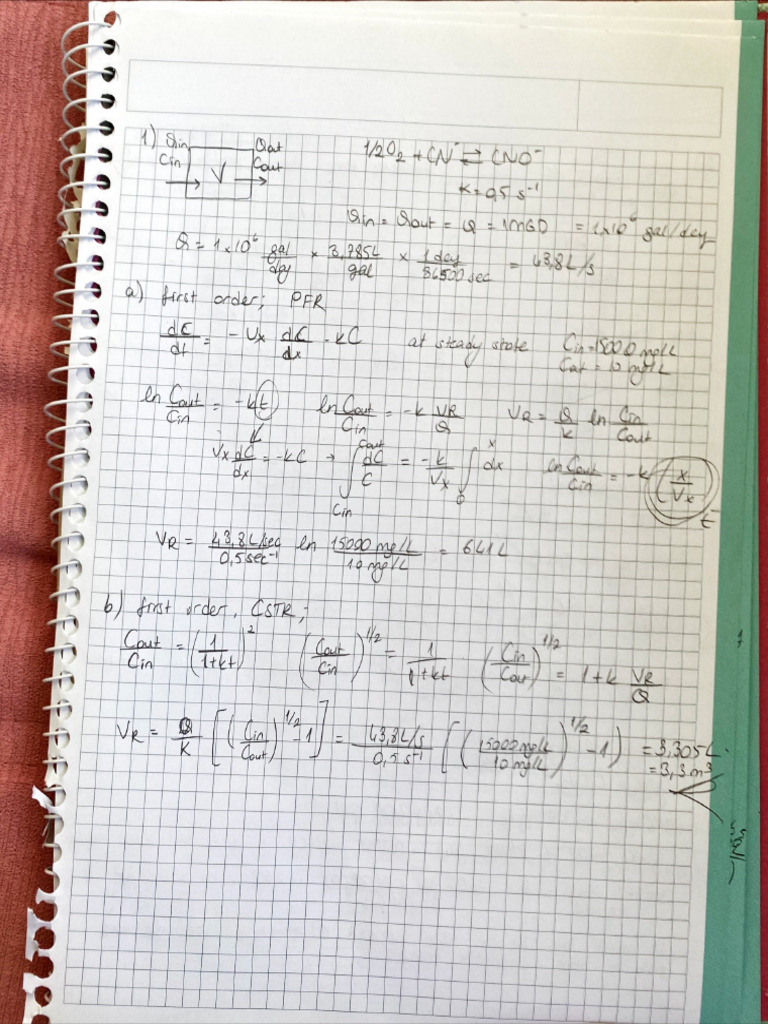 1) Qin Qout 1/2O₂ + CN⁻ ⇄ CNO⁻
Cin V Cout
K = 0,5 s⁻¹
Qin = Qout = Q = 1MGD = 1x10⁶ gal/day
Q = 1x10⁶ gal/day x 3,785L/gal x 1 day/86500 sec = 43,8 L/s
a) first order; PFR
dC/dt = -Vx dC/dx - kC at steady state Cin = 15000 mg/L
Cout = 10 mg/L
ln Cout/Cin = -kt ln Cout/Cin = -k VR/Q VR = Q/k ln Cin/Cout
Vx dC/dx = -kC → ∫Cin^Cout dC/C = -k/Vx ∫0^x dx ln Cout/Cin = -k (x/Vx) t
VR = 43,8 L/sec / 0,5 sec⁻¹ ln 15000 mg/L / 10 mg/L = 641 L
b) first order, CSTR;
Cout/Cin = (1/(1+kt))² (Cout/Cin)^1/2 = 1/(1+kt) (Cin/Cout)^1/2 = 1+k VR/Q
VR = Q/K [(Cin/Cout)^1/2 - 1] = 43,8 L/s / 0,5 s⁻¹ [(15000 mg/L / 10 mg/L)^1/2 - 1) = 3,305L
= 3,3 m³